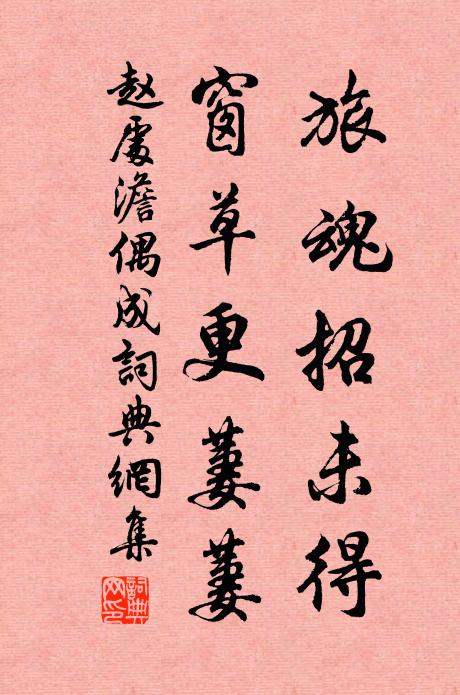 旅魂招未得
窗草更萋萋
赵處澹偶成詞典網集
詞典網印